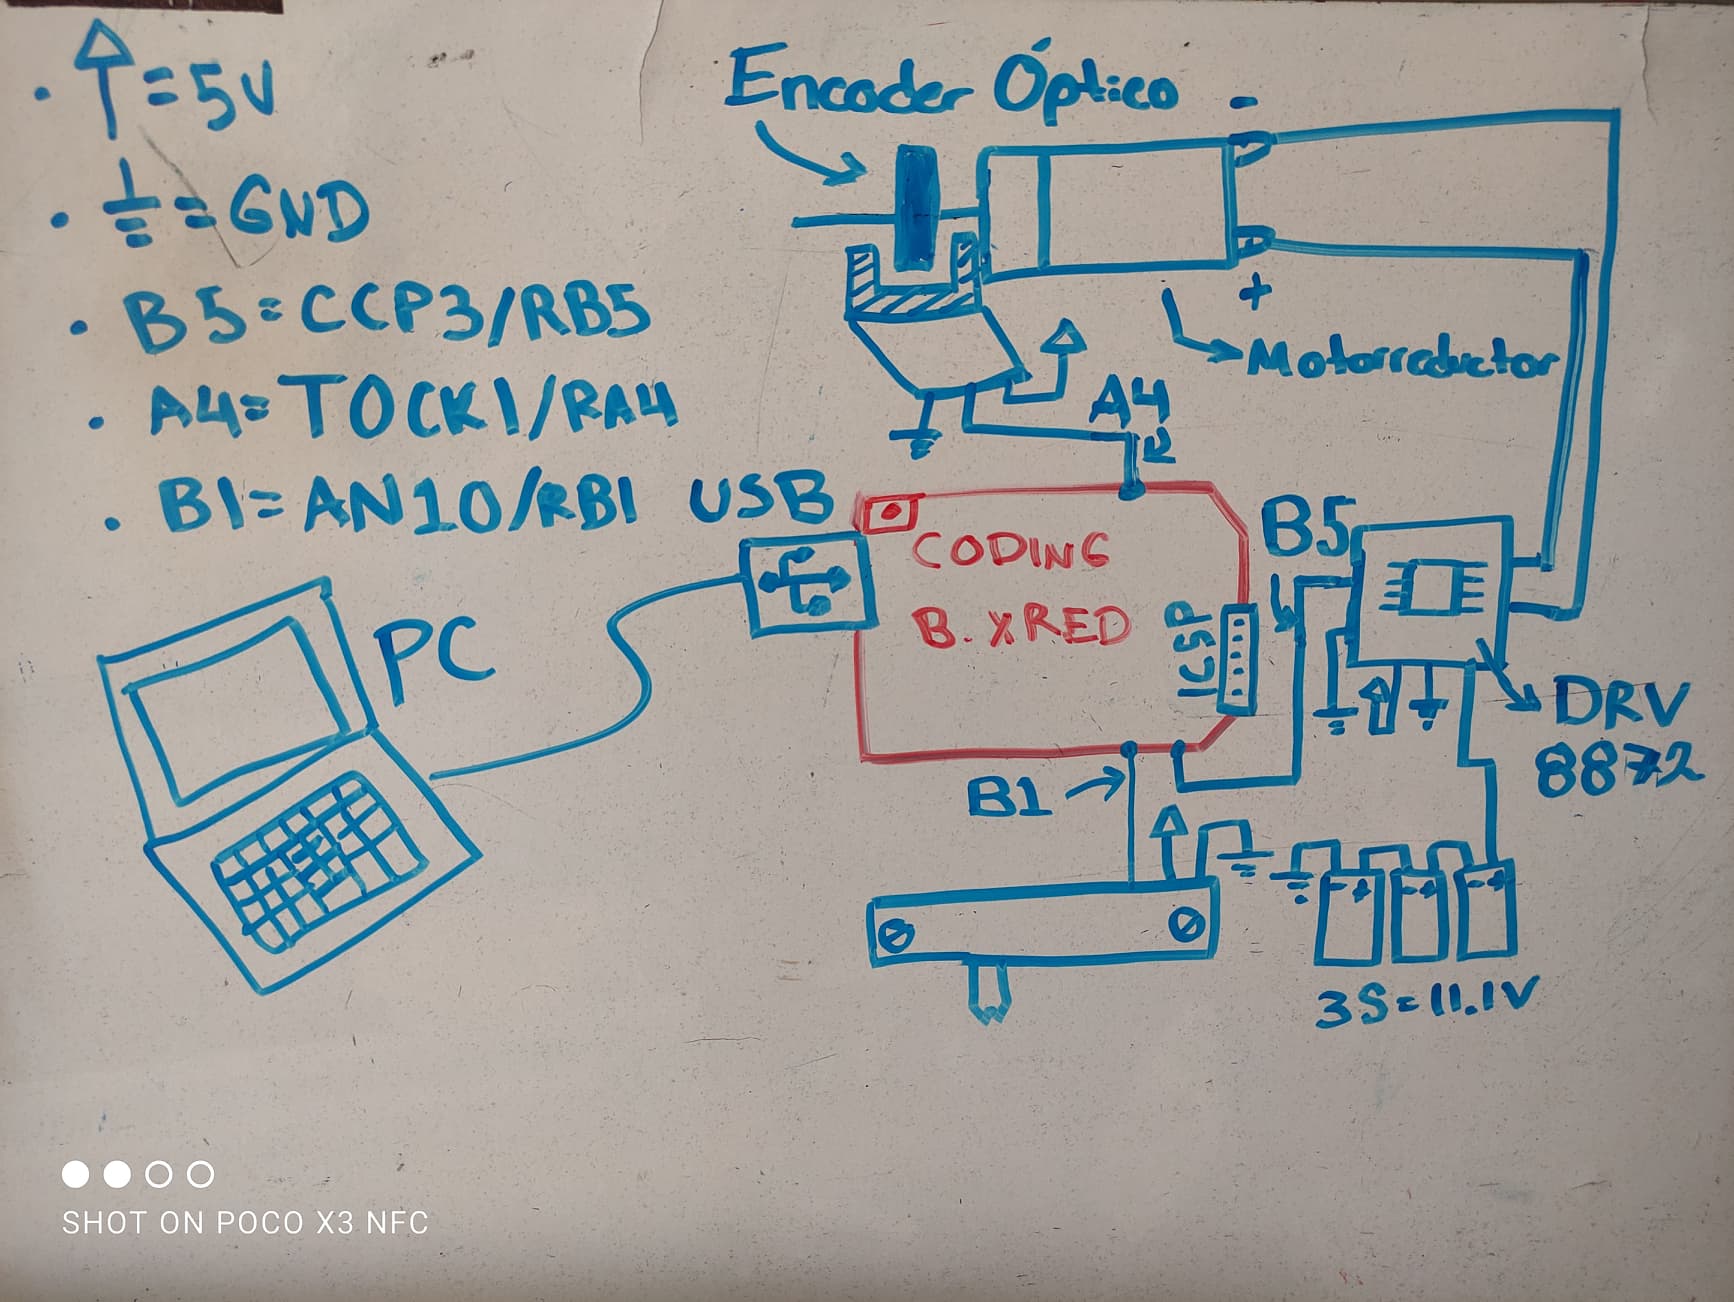 = 5V
= GND
B5 = CCP3/RB5
A4 = TOCK1/RA4
B1 = AN10/RB1
Encoder Óptico
-
+
Motorreductor
A4
USB
CODING
B. XRED
ICSP
B5
PC
DRV
8872
B1
- +
- +
- +
3S = 11.1V
SHOT ON POCO X3 NFC